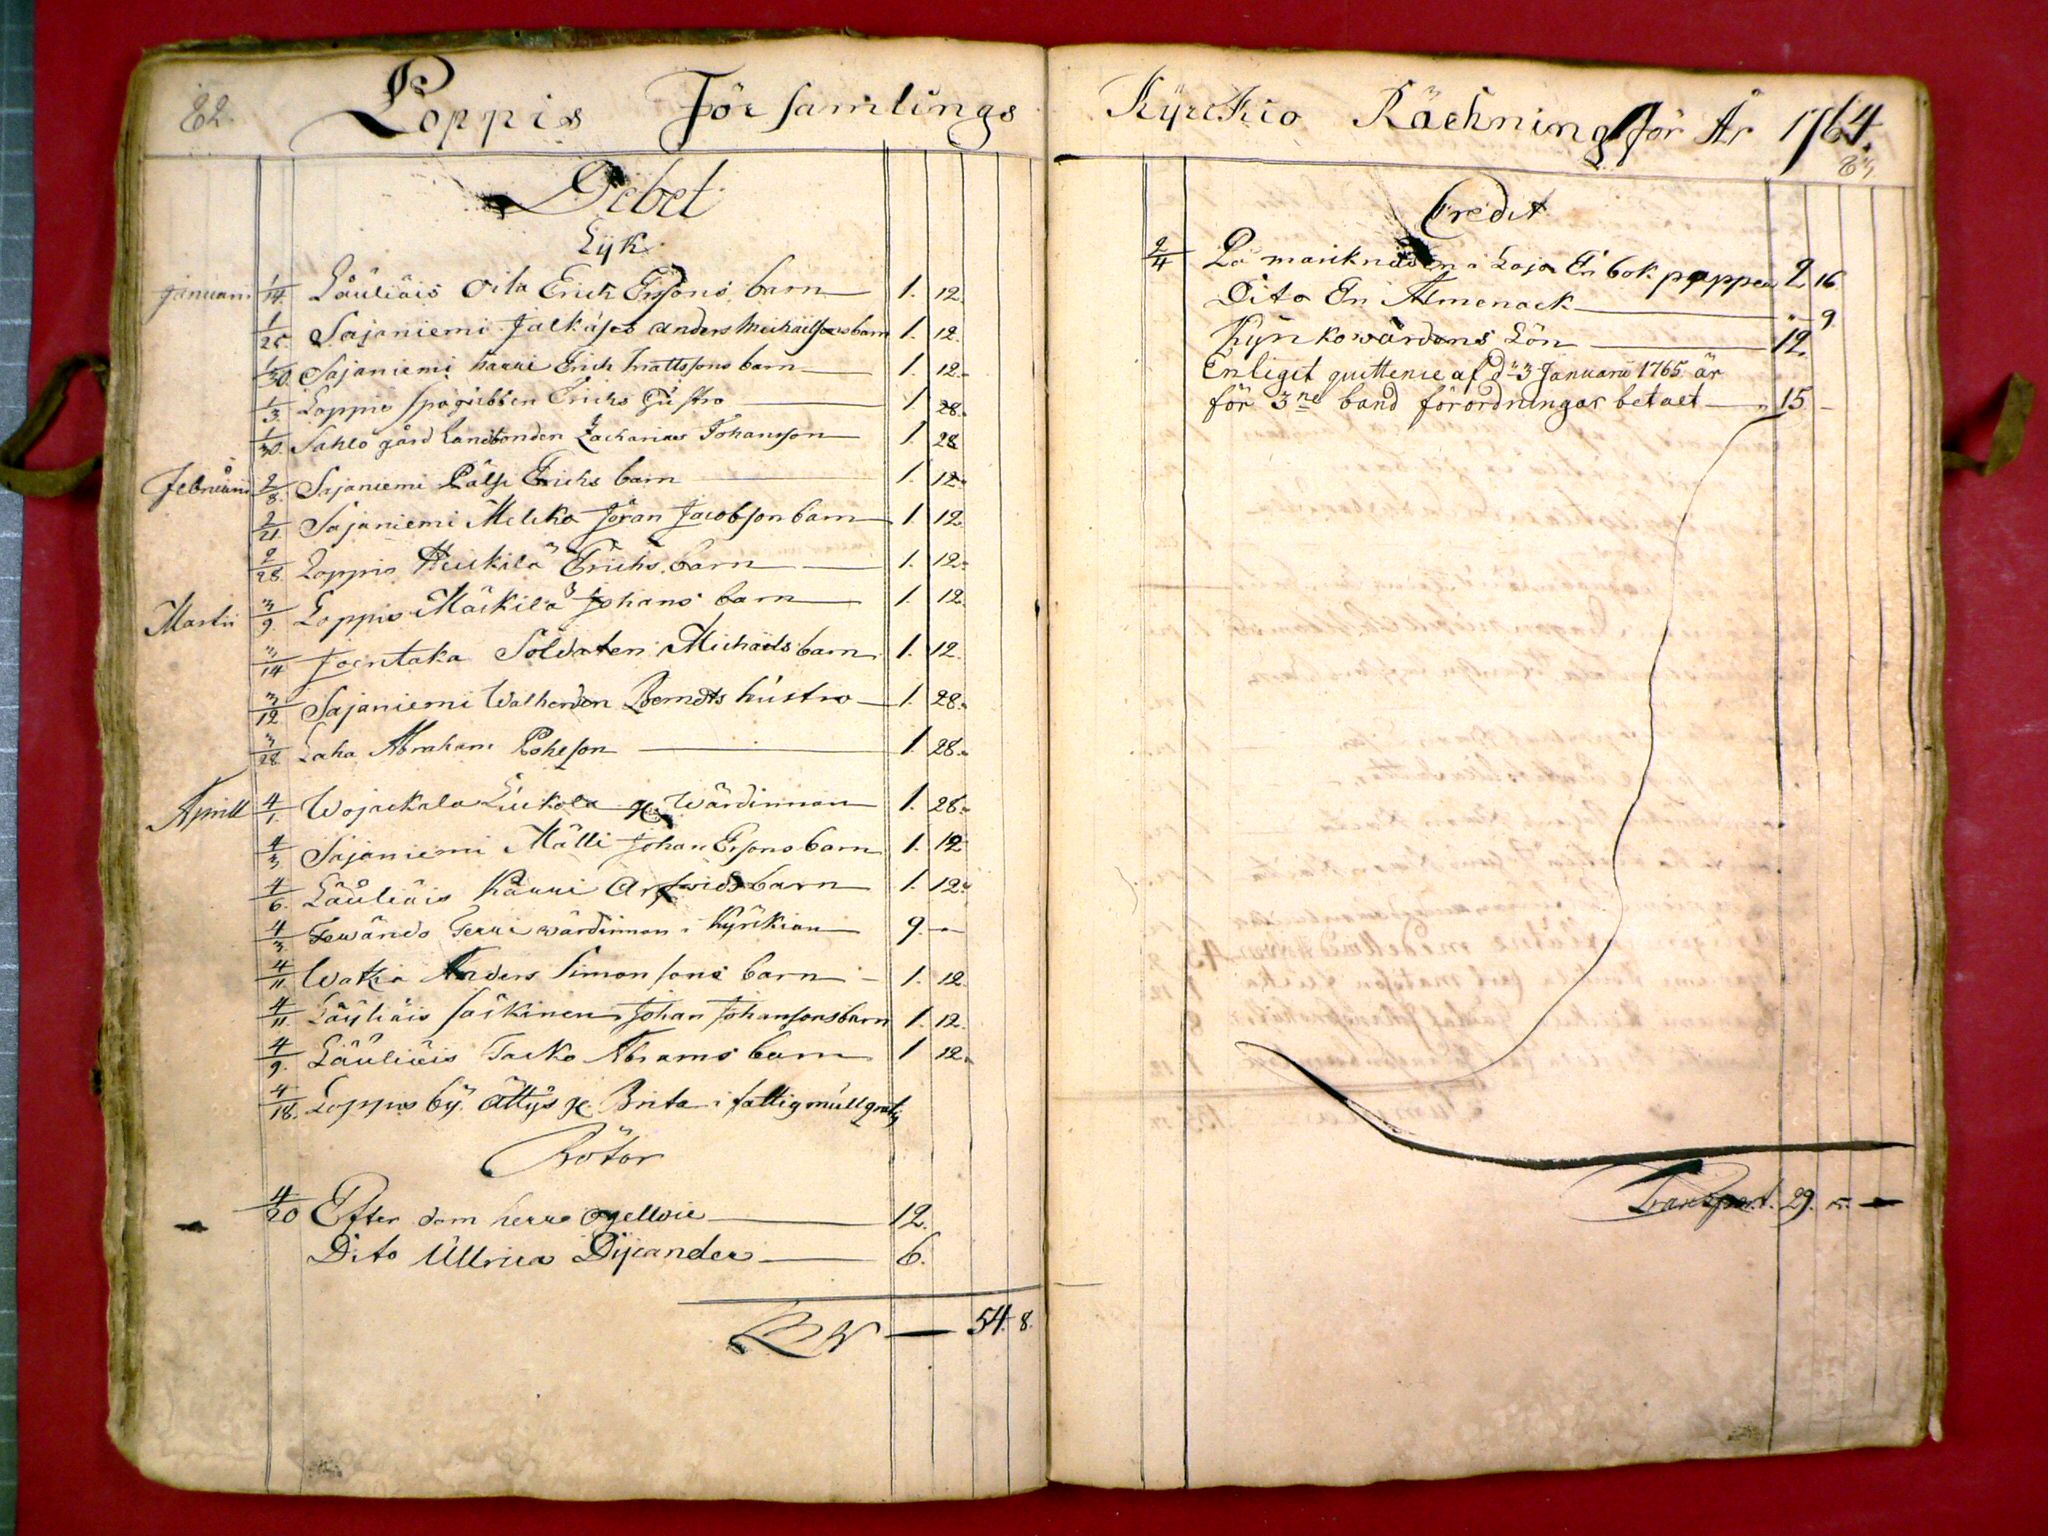 82.
Loppis Församlings
Debet
Lijk
Januarii 1/14. Läuliäis Oita Erich Ersons barn 1. 12.
1/25. Sajaniemi Jalkájes anders Michaelsons barn 1. 12.
1/30. Sajaniemi harri Erich Mattssons barn 1. 12.
1/3. Loppis spogubben Erichs Hustro 1. 28.
1/30. Sahlo gård Landbonden Zacharias Johansson 1. 28
Februarii 2/8. Sajaniemi Pälsi Erichs barn 1. 12.
2/21. Sajaniemi Melcko Jöran Jacobson barn 1. 12
2/28. Loppis Heickilä Erichs barn 1. 12.
Martii 3/9. Loppis Mäckilä Johans barn 1. 12.
3/14 Joentaka Soldaten Michaels barn 1. 12.
3/12 Sajaniemi Walhenden Berndts hustro 1. 28.
3/28 Laha Abraham 1. 28.
Aprill 4/1. Wojackala Liuckola g. Wärdinnan 1. 28.
4/3 Sajaniemi Mälli Johan Ersons barn 1. 12
4/6. Läuliäis Harri Arfwids barn 1. 12.
4/3. Terwändo Terri wärdinnan i Kyrckian 9. -
4/11 Watsia Anders Simonsons barn 1. 12
4/11. Läyliäis Säskinen Johan Johansons barn 1. 12.
4/9. Läuliäis Tacko Abrams barn 1 12.
4/18. Loppis by Ättys g. Brita i fattigmull gratis
Rötor
4/20 Efter dem herre Ogellwie 12.
Dito Ullrica Dijcander 6.
54. 8.
Kyrckio Räckning för År 1764.
83
Credit
2/4 På marcknaden i Loja En bok papper 2 16
Dito En Almenack " 9
Kyrckowärdens Lön 12.
Enligit quittence af d. 3 Januarii 1765 är
för 3ne band förordningar betalt 15 -
Transport. 29. 5. -